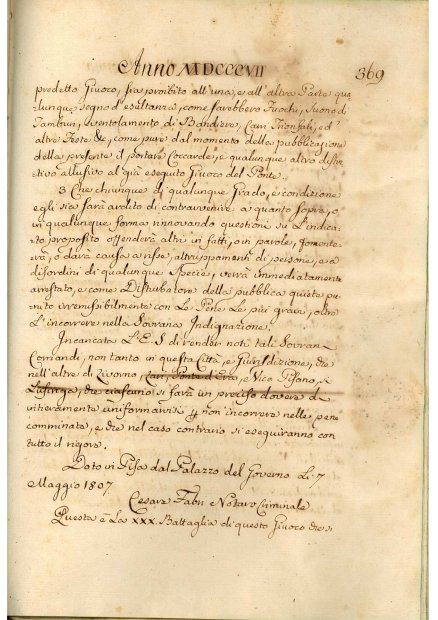 Anno MDCCCVII 369
predetto Giuoco, sia proibito all'una, e all'altra Parte qua
lunque segno d'esultanza, come sarebbero Fuochi, Suono di
Tamburi, sventolamento di Bandiere, Carri Trionfali, ed
altre Feste &, come pure dal momento della pubblicazione
della presente il portare Coccarde, e qualunque altro distin
tivo allusivo al già eseguito Giuoco del Ponte.
3 Che chiunque di qualunque Grado, e condizione
egli sia sarà ardito di contravvenire a quanto sopra, o
in qualunque forma rinnovando questioni su l'indica
to proposito offenderà altri in fatti, o in parole, fomente
rà, o darà causa a risse, attruppamenti di persone, e a
disordini di qualunque specie, verrà immediatamente
arrestato, e come Disturbatore della pubblica quiete pu
nito irremissibilmente con Le Pene Le più gravi, oltre
L'incorrere nella Sovrana Indignazione.
Incaricata L'E. S. di render noti tali Sovrani
Comandi, non tanto in questa Città, e Giurisdizione, che
nell'altre di Livorno, Lari, Ponte d'Era, e Vico Pisano, si
Lusinga, che ciascuno si farà un preciso dovere di
intieramente uniformarvisi non incorrere nelle pene
comminate, e che nel caso contrario si eseguiranno con
tutto il rigore.
Dato in Pisa dal Palazzo del Governo Li 7
Maggio 1807
Cesare Fabri Notaro Criminale
Questa è La XXX. Battaglia di questo Giuoco che